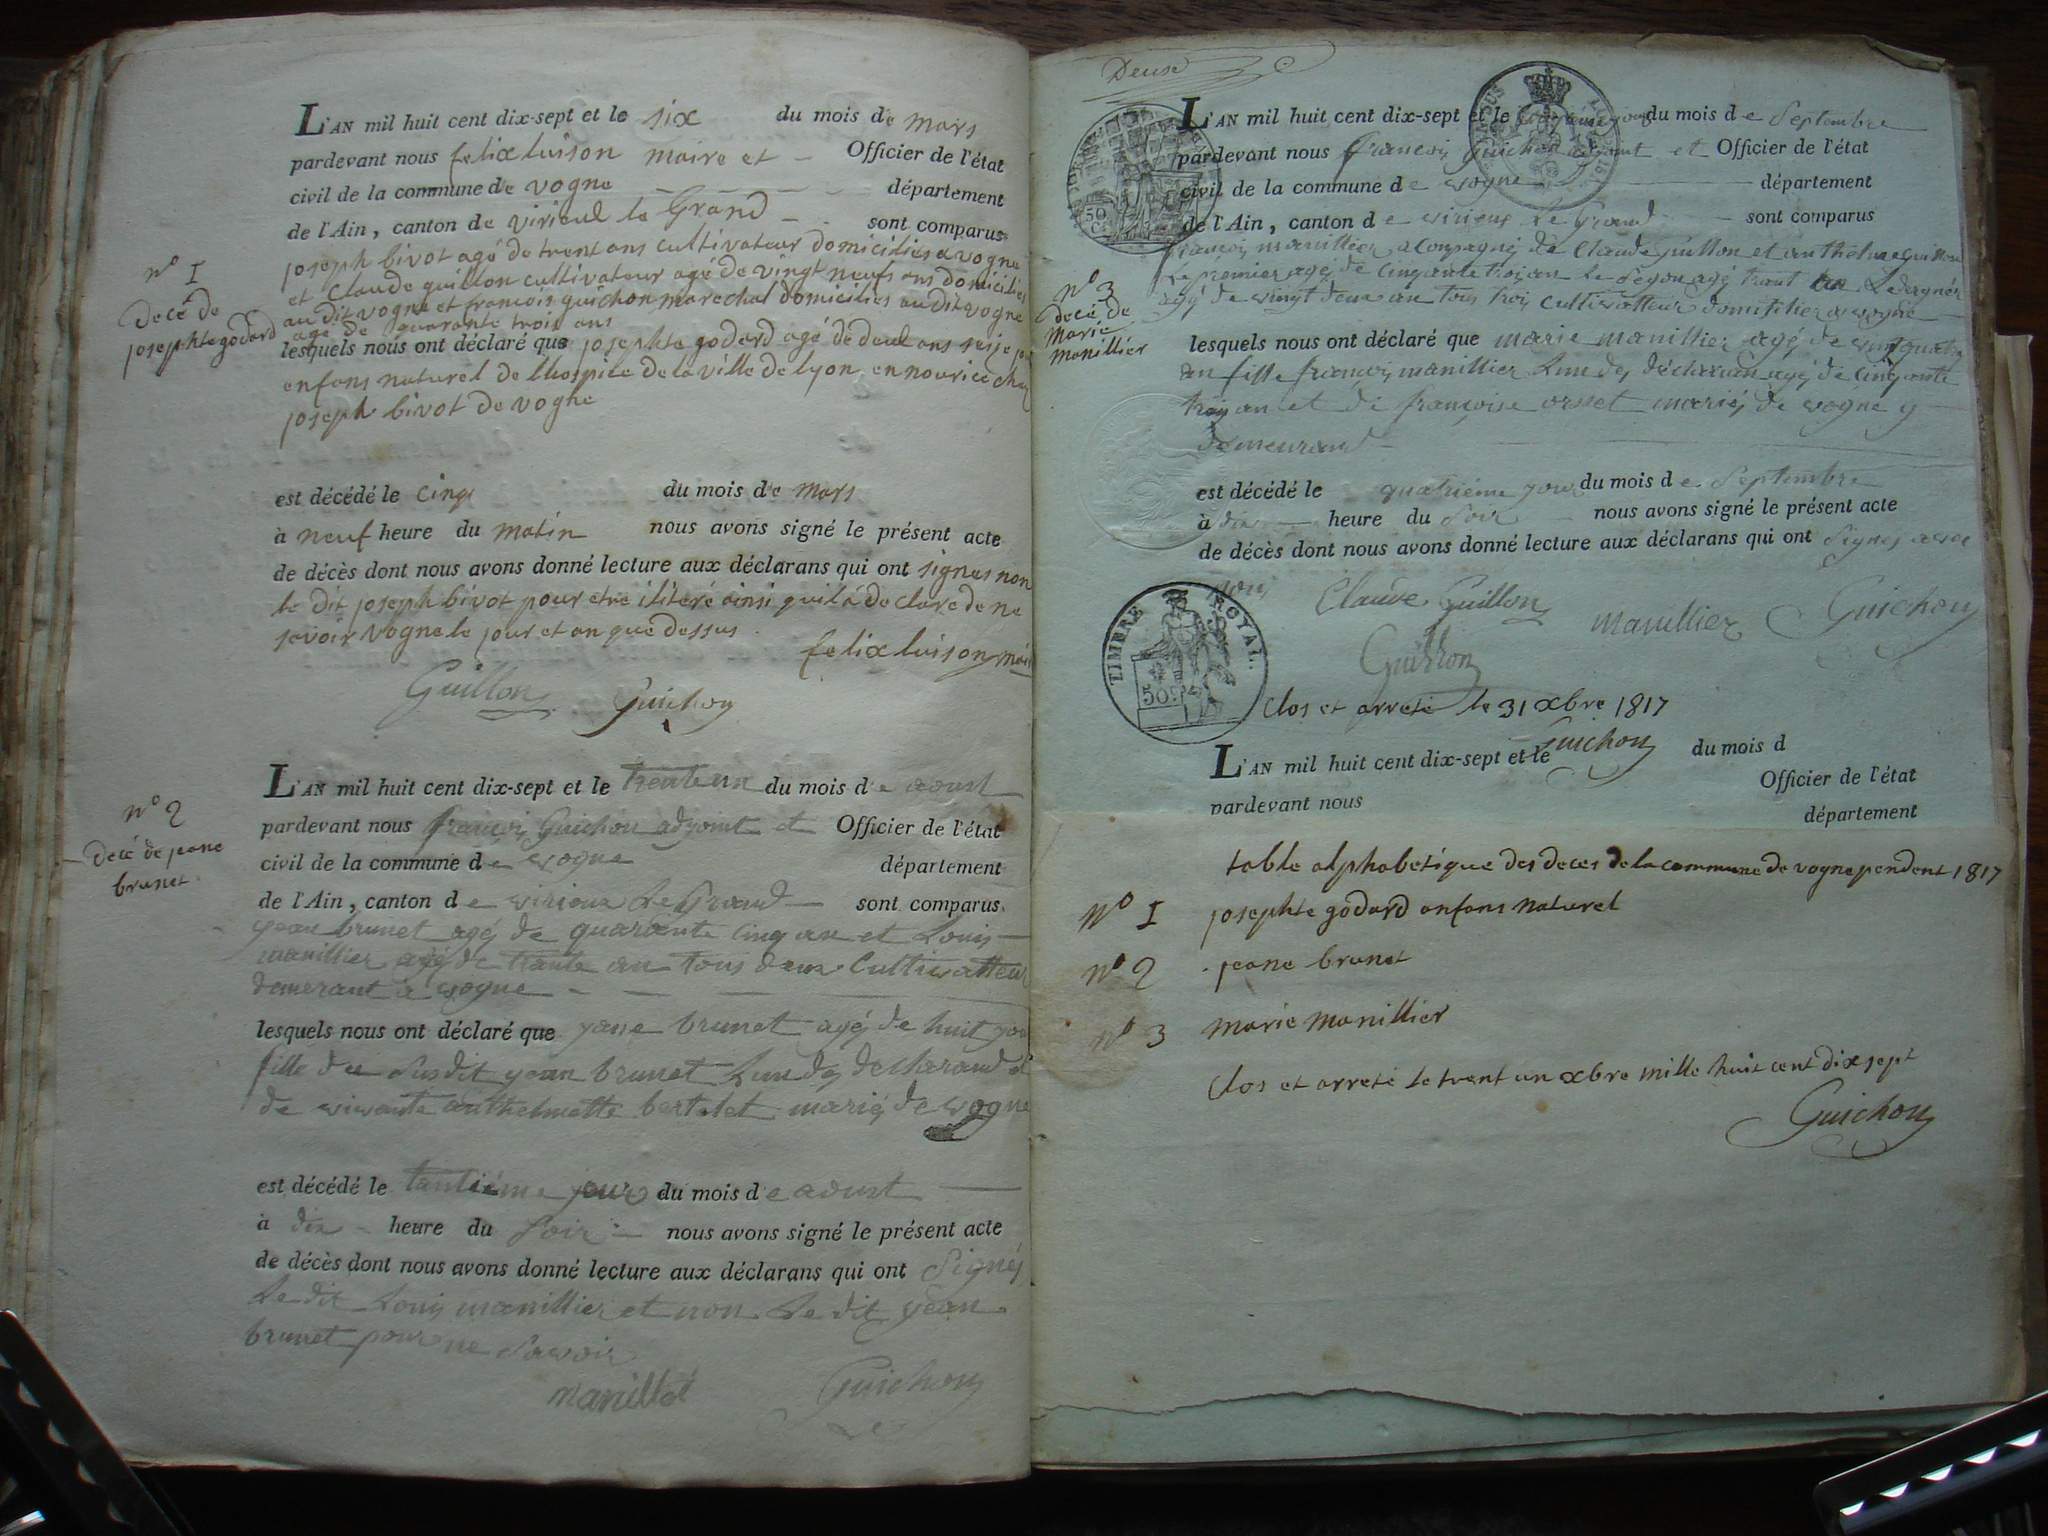 L'AN mil huit cent dix-sept et le six du mois de mars
pardevant nous felix luison maire et Officier de l'état
civil de la commune de vogne département
de l'Ain, canton de virieul le Grand sont comparus
joseph bivot agé de trent ans cultivateur domiciliés a vogne
et Claude guillon cultivateur agé de vingt neufs ans domiciliés
au dit vogne et francois guichon marechal domiciliés au dit vogne
age de quarante trois ans
n° 1
Decé de
josephte godard
lesquels nous ont déclaré que josephte godard agé de deul ans
enfans naturel de lhospice de la ville de lyon en nourice chez
joseph bivot de vogne
est décédé le cinq du mois de mars
à neuf heure du matin nous avons signé le présent acte
de décès dont nous avons donné lecture aux déclarans qui ont signes non
le dit joseph bivot pour etre ilitéré ainsi quil a declare de ne
savoir vogne le jour et an que dessus
felix luison
Guillon Guichon
L'AN mil huit cent dix-sept et le trente un du mois de aoust
n° 2
decé de jeane
brunet
pardevant nous françois Guichon adjoint et Officier de l'état
civil de la commune de vogne département
de l'Ain, canton de virieux Le Grand sont comparus
jean brunet agé de quarante cinq an et Louis
manillier agé de trante an tous deux Cultivatteur
demerant a vogne
lesquels nous ont déclaré que jane brunet agé de huit
fille du Susdit jean brunet Lun des declarand et
de vivante anthelmette bertelet mariés de vogne
est décédé le tantiéme jour du mois de aoust
à dix heure du soir nous avons signé le présent acte
de décès dont nous avons donné lecture aux déclarans qui ont Signés
Le dit Louis manillier et non Le dit jean
brunet pour ne savoir
Guichon
Deuse
L'AN mil huit cent dix-sept et le du mois de Septembre
pardevant nous francois Guichon adjoint et Officier de l'état
civil de la commune de vogne département
de l'Ain, canton de virieux Le Grand sont comparus
françois manillier acompagné de Claude guillon et anthelme guillon
Le premier agé de cinquante troi an Le segon agé trant an Le dernier
agé de vingt deux an tous troi cultivatteur domicilier a vogne
n° 3
decé de
marie
manillier
lesquels nous ont déclaré que marie manillier agé de
an fille françois manillier Lun des declaran agé de cinquante
troi an et de françoise orsset mariés de vogne y
demeurand
est décédé le quatriéme jour du mois de Septembre
à dix heure du soir nous avons signé le présent acte
de décès dont nous avons donné lecture aux déclarans qui ont Signés avec
nous
Claude Guillon manillier Guichon
Guillon
TIMBRE ROYAL
50
Clos et arreté le 31 xbre 1817
Guichon
L'AN mil huit cent dix-sept et le du mois d
pardevant nous Officier de l'état
département
table alphabetique des deces de la commune de vogne pendent 1817
n° 1 josephte godard enfans naturel
n° 2 jeane brunet
n° 3 marie manillier
Clos et arreté le trent un xbre mille huit cent dix sept
Guichon